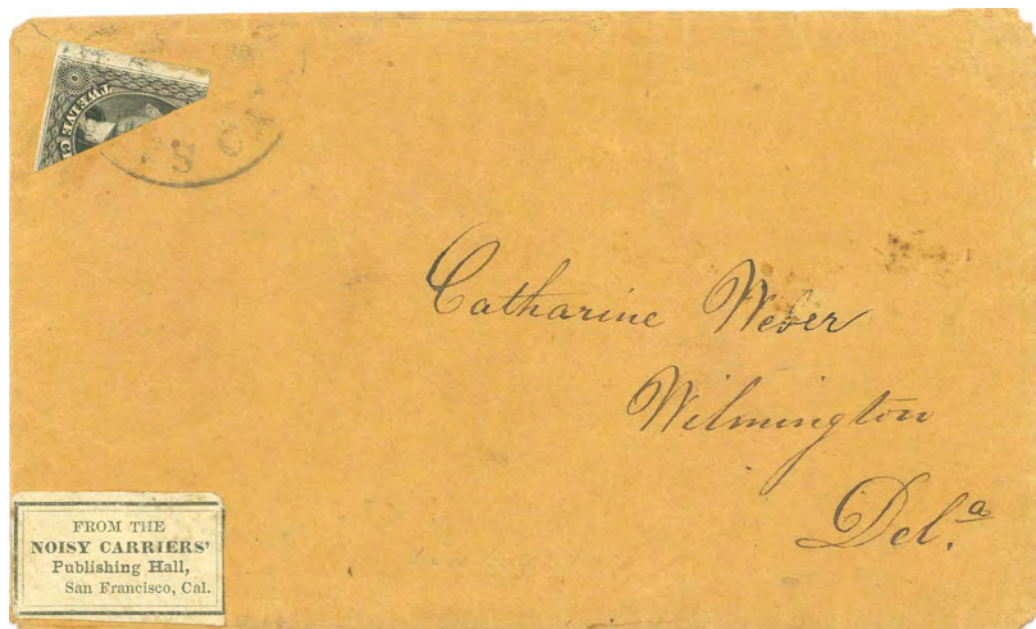 TWELVE
S CA
Catharine Weber
Wilmington
Del.a
FROM THE
NOISY CARRIERS'
Publishing Hall,
San Francisco, Cal.